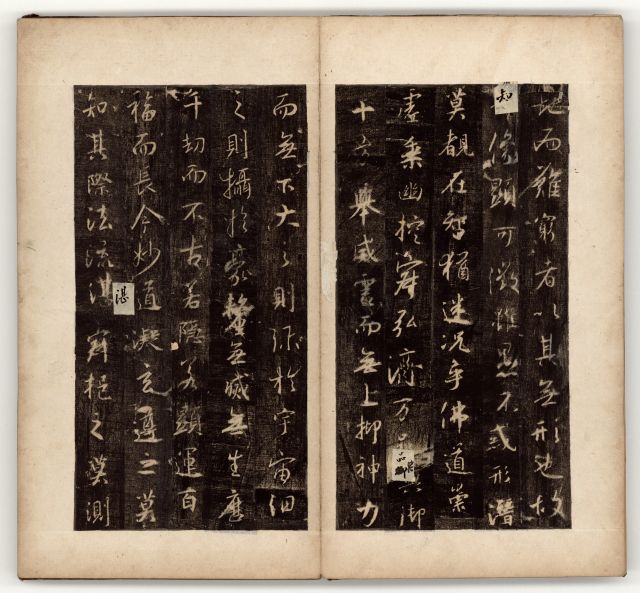 地而難窮者以其無形也故
知像顯可徵雖愚不惑形潛
莫覩在智猶迷況乎佛道崇
虛乘幽控寂弘濟万品典御
十方舉威靈而無上抑神力
而無下大之則彌於宇宙細
之則攝於豪釐無滅無生歷
千劫而不古若隱若顯運百
福而長今妙道凝玄遵之莫
知其際法流湛寂挹之莫測